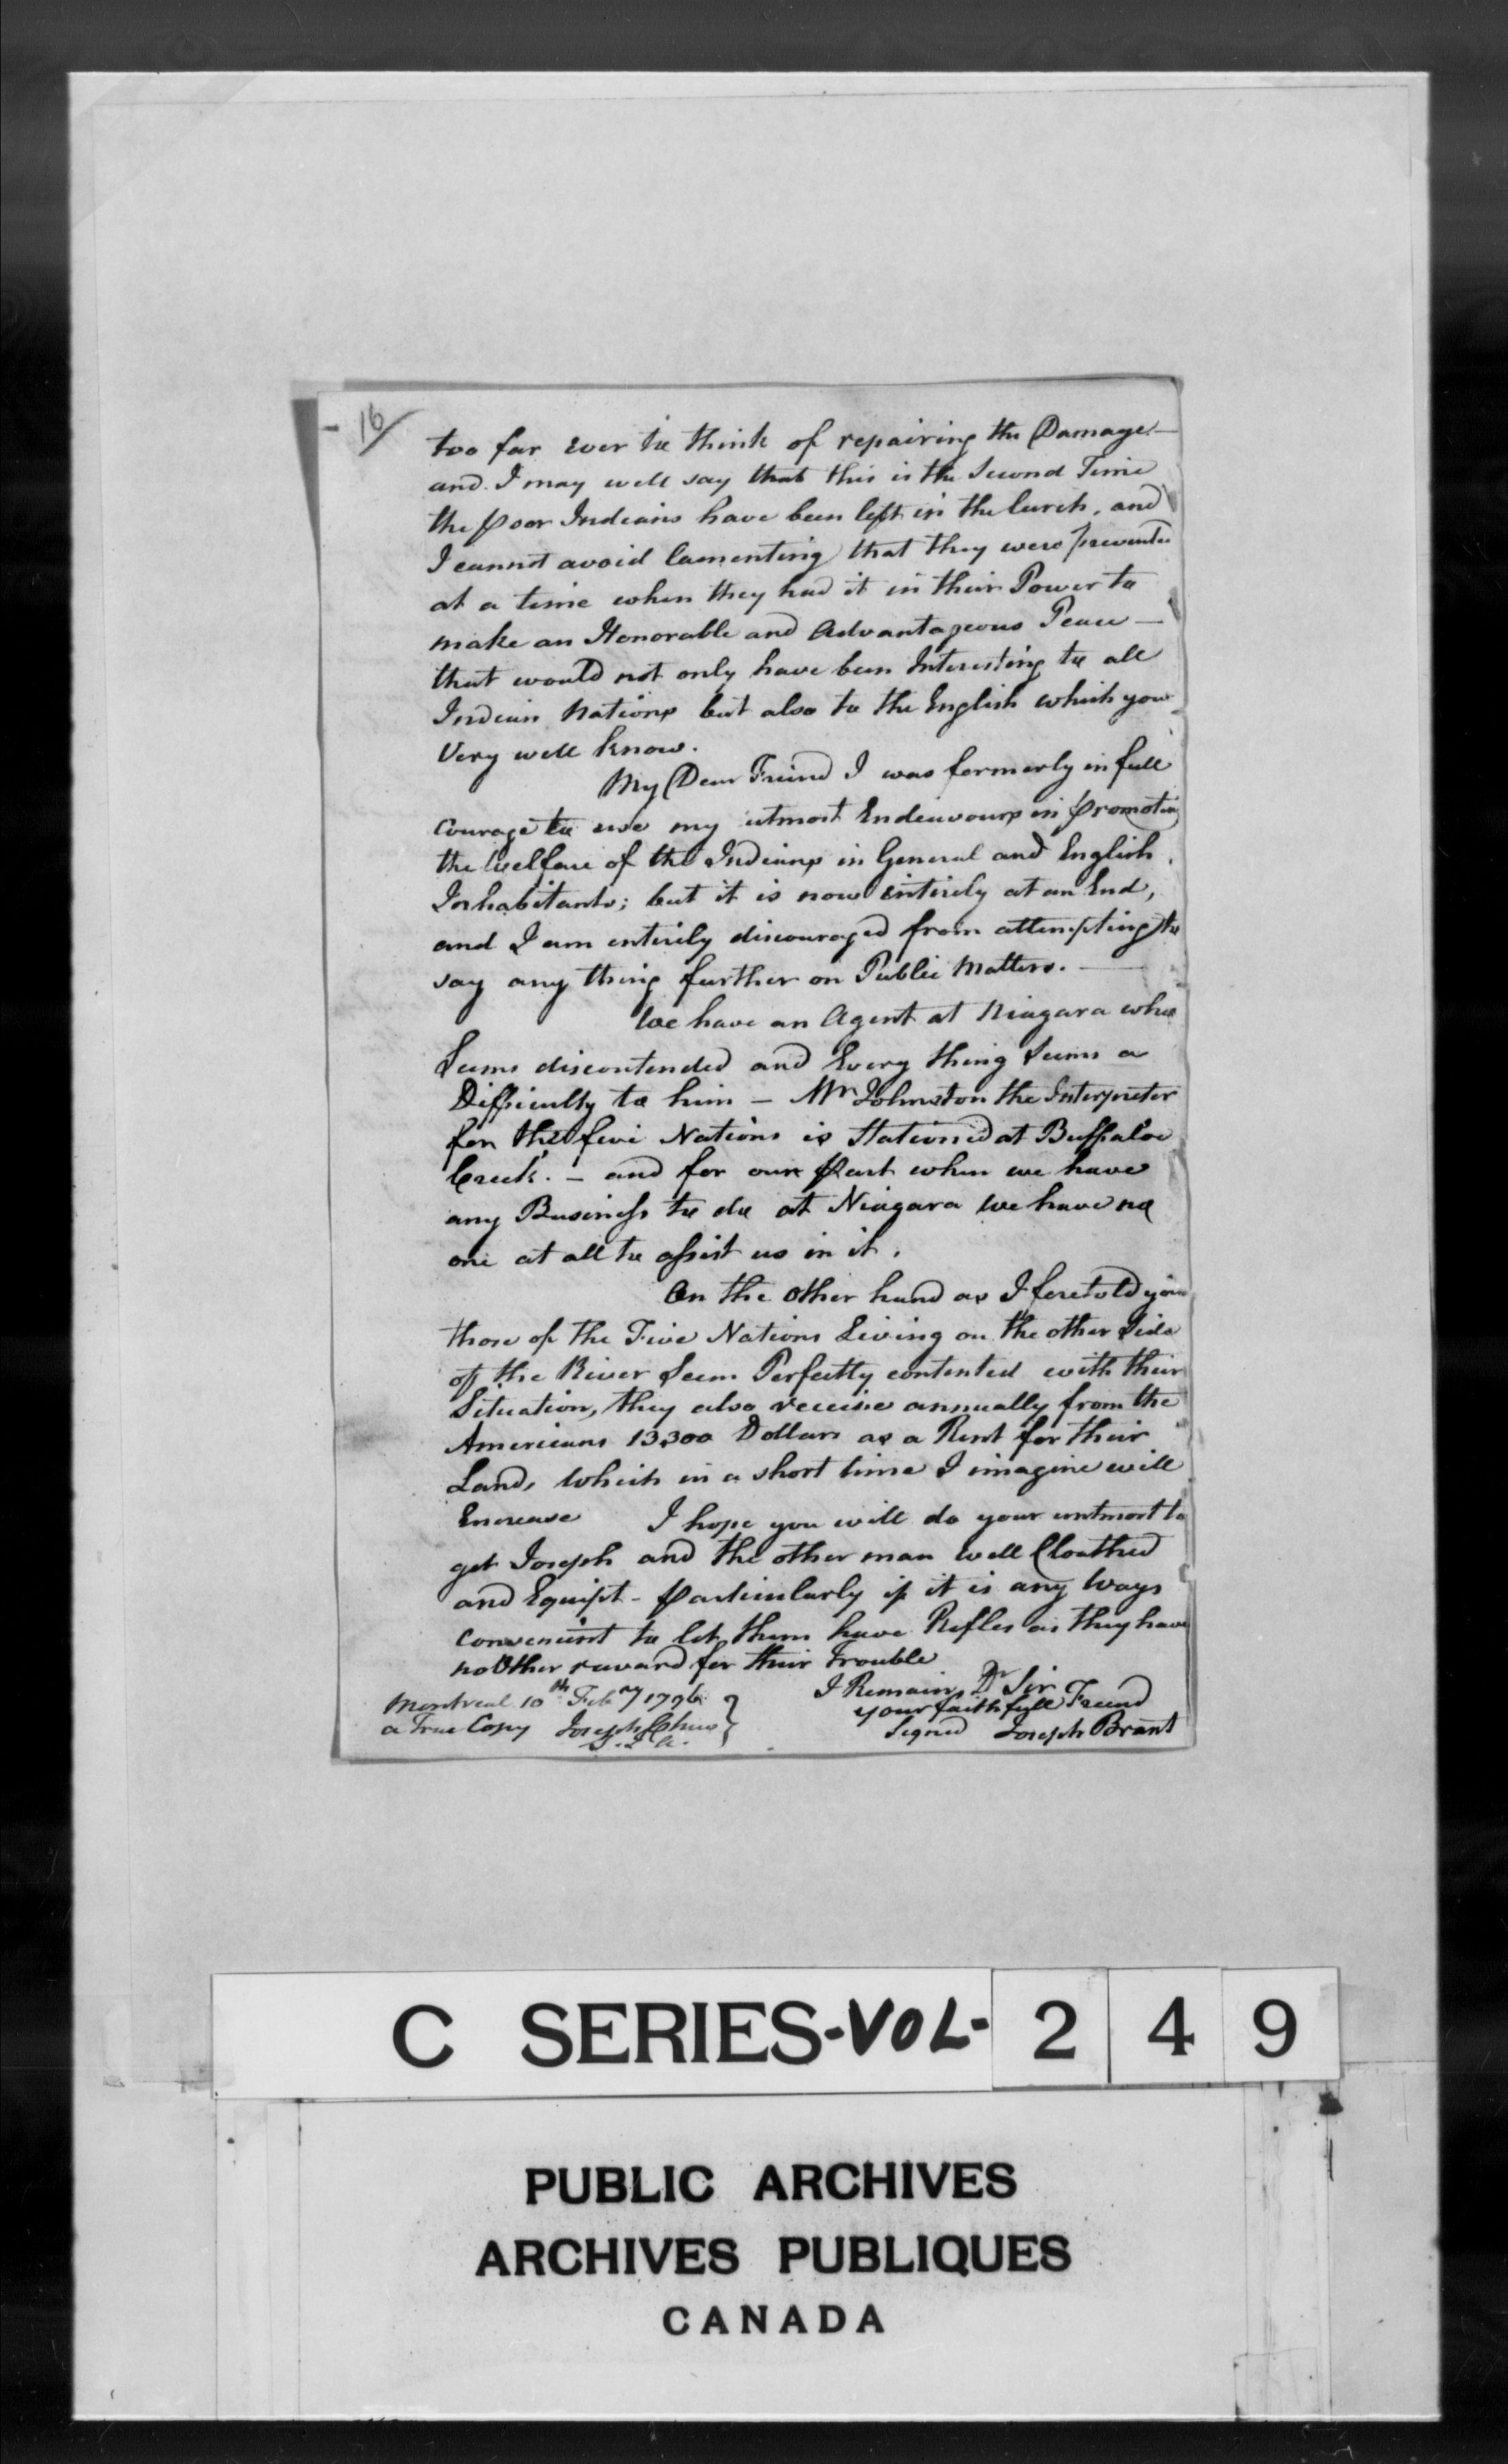 16/
too far ever to think of repairing the Damage —
and I may well say that this is the Second Time
the poor Indians have been left in the lurch, and
I cannot avoid lamenting that they were prevented
at a time when they had it in their Power to
make an Honorable and Advantageous Peace —
that would not only have been Interesting to all
Indian Nations but also to the English which you
Very well know.
My Dear Freind I was formerly in full
Courage to use my utmost Endeavours in promoting
the Welfare of the Indians in General and English
Inhabitants; but it is now entirely at an End,
and I am entirely discouraged from attempting to
say any thing further on Public Matters. —
We have an Agent at Niagara who
Seems discontended and Every thing Seems a
Difficulty to him — Mr Johnston the Interpreter
for the five Nations is Stationed at Buffaloe
Creek. — and for our part when we have
any Business to do at Niagara we have no
one at all to assist us in it.
On the other hand as I foretold you
those of the Five Nations Living on the other Side
of the River Seem Perfectly contented with their
Situation, they also receive annually from the
Americans 13300 Dollars as a Rent for their
Land, which in a short time I imagine will
Encrease I hope you will do your untmost to
get Joseph and the other man well Cloathed
and Equipt - particularly if it is any Ways
convenient to let them have Rifles as they have
no Other reward for their Trouble
I Remain Dr Sir
your faithfull Freind
Signed Joseph Brant
Montreal 10th Febry 1796
a True Copy Joseph Chew
S.I.A.
C SERIES-VOL- 2 4 9
PUBLIC ARCHIVES
ARCHIVES PUBLIQUES
CANADA